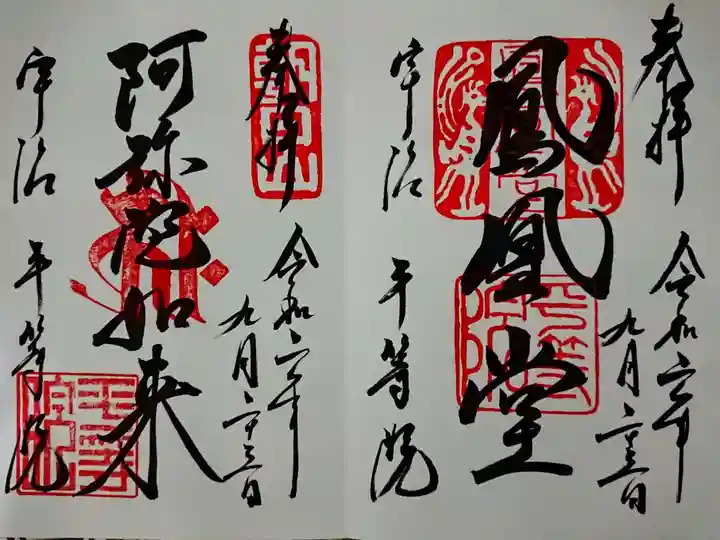 奉拝
令和六年
九月二十三日
鳳凰堂
宇治
平等院
奉拝
令和六年
九月二十三日
阿弥陀如来
宇治
平等院